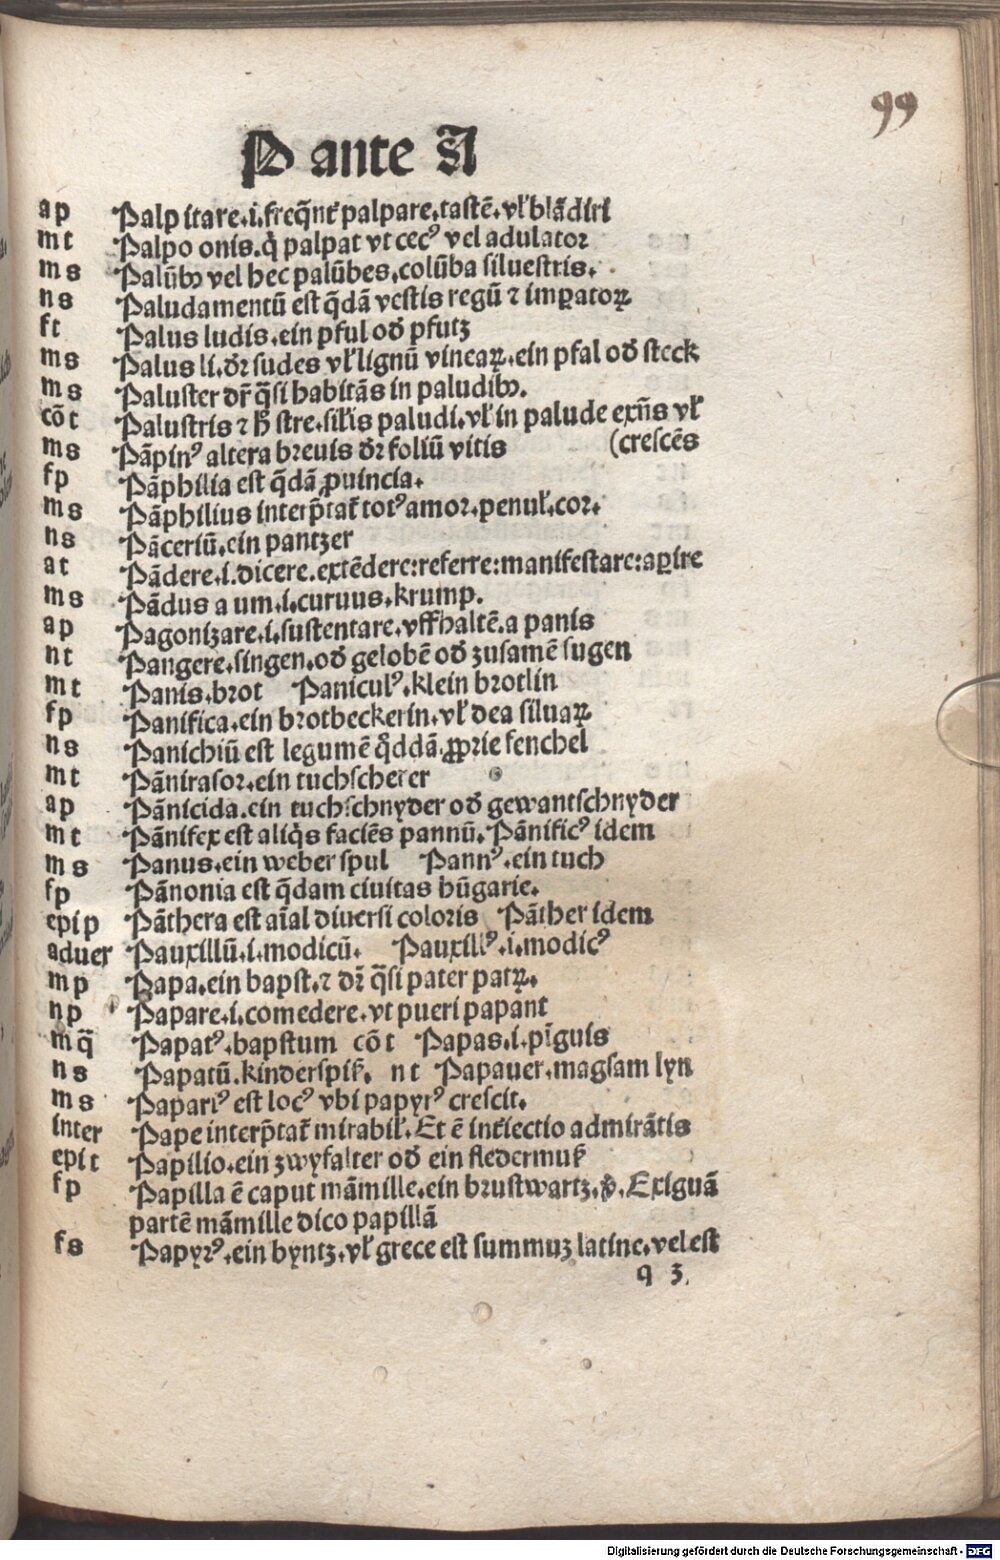 99
P ante A
ap Palpitare.i.freq̃nt᷑ palpare.tastẽ.vł blãdiri
mt Palpo onis.q̇ palpat vt cecꝰ vel adulator
ms Palũbꝰ vel hec palũbes.colũba siluestris.
ns Paludamentũ est q̃dã vestis regũ ⁊ imꝑatoꝝ
ft Palus ludis.ein pful oď pfutz
ms Palus li.dr̃ sudes vł lignũ vineaꝝ.ein pfal oď steck
ms Paluster dr̃ q̃si habitãs in paludibꝰ.
cõt Palustris ⁊ hͦ stre.siłis paludi.vł in palude exñs vł
ms Pãpinꝰ altera breuis dr̃ foliũ vitis (crescẽs
fp Pãphilia est q̃dã ꝓuincia.
ms Pãphilius interp̃tat᷑ totꝰ amor.penuł.cor.
ns Pãceriũ.ein pantzer
at Pãdere.i.dicere.extẽdere:referre:manifestare:aꝑire
ms Pãdus a um.i.curuus.krump.
ap Pagonizare.i.sustentare.vffhaltẽ.a panis
nt Pangere.singen.oď gelobẽ oď zusamẽ fugen
mt Panis.brot Paniculꝰ.klein brotlin
fp Panifica.ein brotbeckerin.vł dea siluaꝝ
ns Panichiũ est legumẽ q̇ddã.ꝓprie fenchel
mt Pãnirasor.ein tuchscherer
ap Pãnicida.ein tuchschnyder oď gewantschnyder
mt Pãnifex est aliq̇s faciẽs pannũ.Pãnificꝰ idem
ms Panus.ein weber spul Pannꝰ.ein tuch
fp Pãnonia est q̃dam ciuitas hũgarie.
epi p Pãthera est aĩal diuersi coloris Pãther idem
aduer Pauxillũ.i.modicũ. Pauxillꝰ.i.modicꝰ
mp Papa.ein bapst.⁊ dr̃ q̃si pater patꝝ.
np Papare.i.comedere.vt pueri papant
mq̃ Papatꝰ.bapstum cõt Papas.i.pĩguis
ns Papatũ.kinderspiſ. nt Papauer.magsam lyn
ms Papariꝰ est locꝰ vbi papyrꝰ crescit.
inter Pape interp̃tat᷑ mirabił.Et ẽ int᷑iectio admirãtis
epi t Papilio.ein zwyfalter oď ein fledermuß
fp Papilla ẽ caput mãmille.ein brustwartz.ꝟ.Exiguã
partẽ mãmille dico papillã
fs Papyrꝰ.ein byntz.vł grece est summuꝫ latine.vel est
q 3.
Digitalisierung gefördert durch die Deutsche Forschungsgemeinschaft - DFG